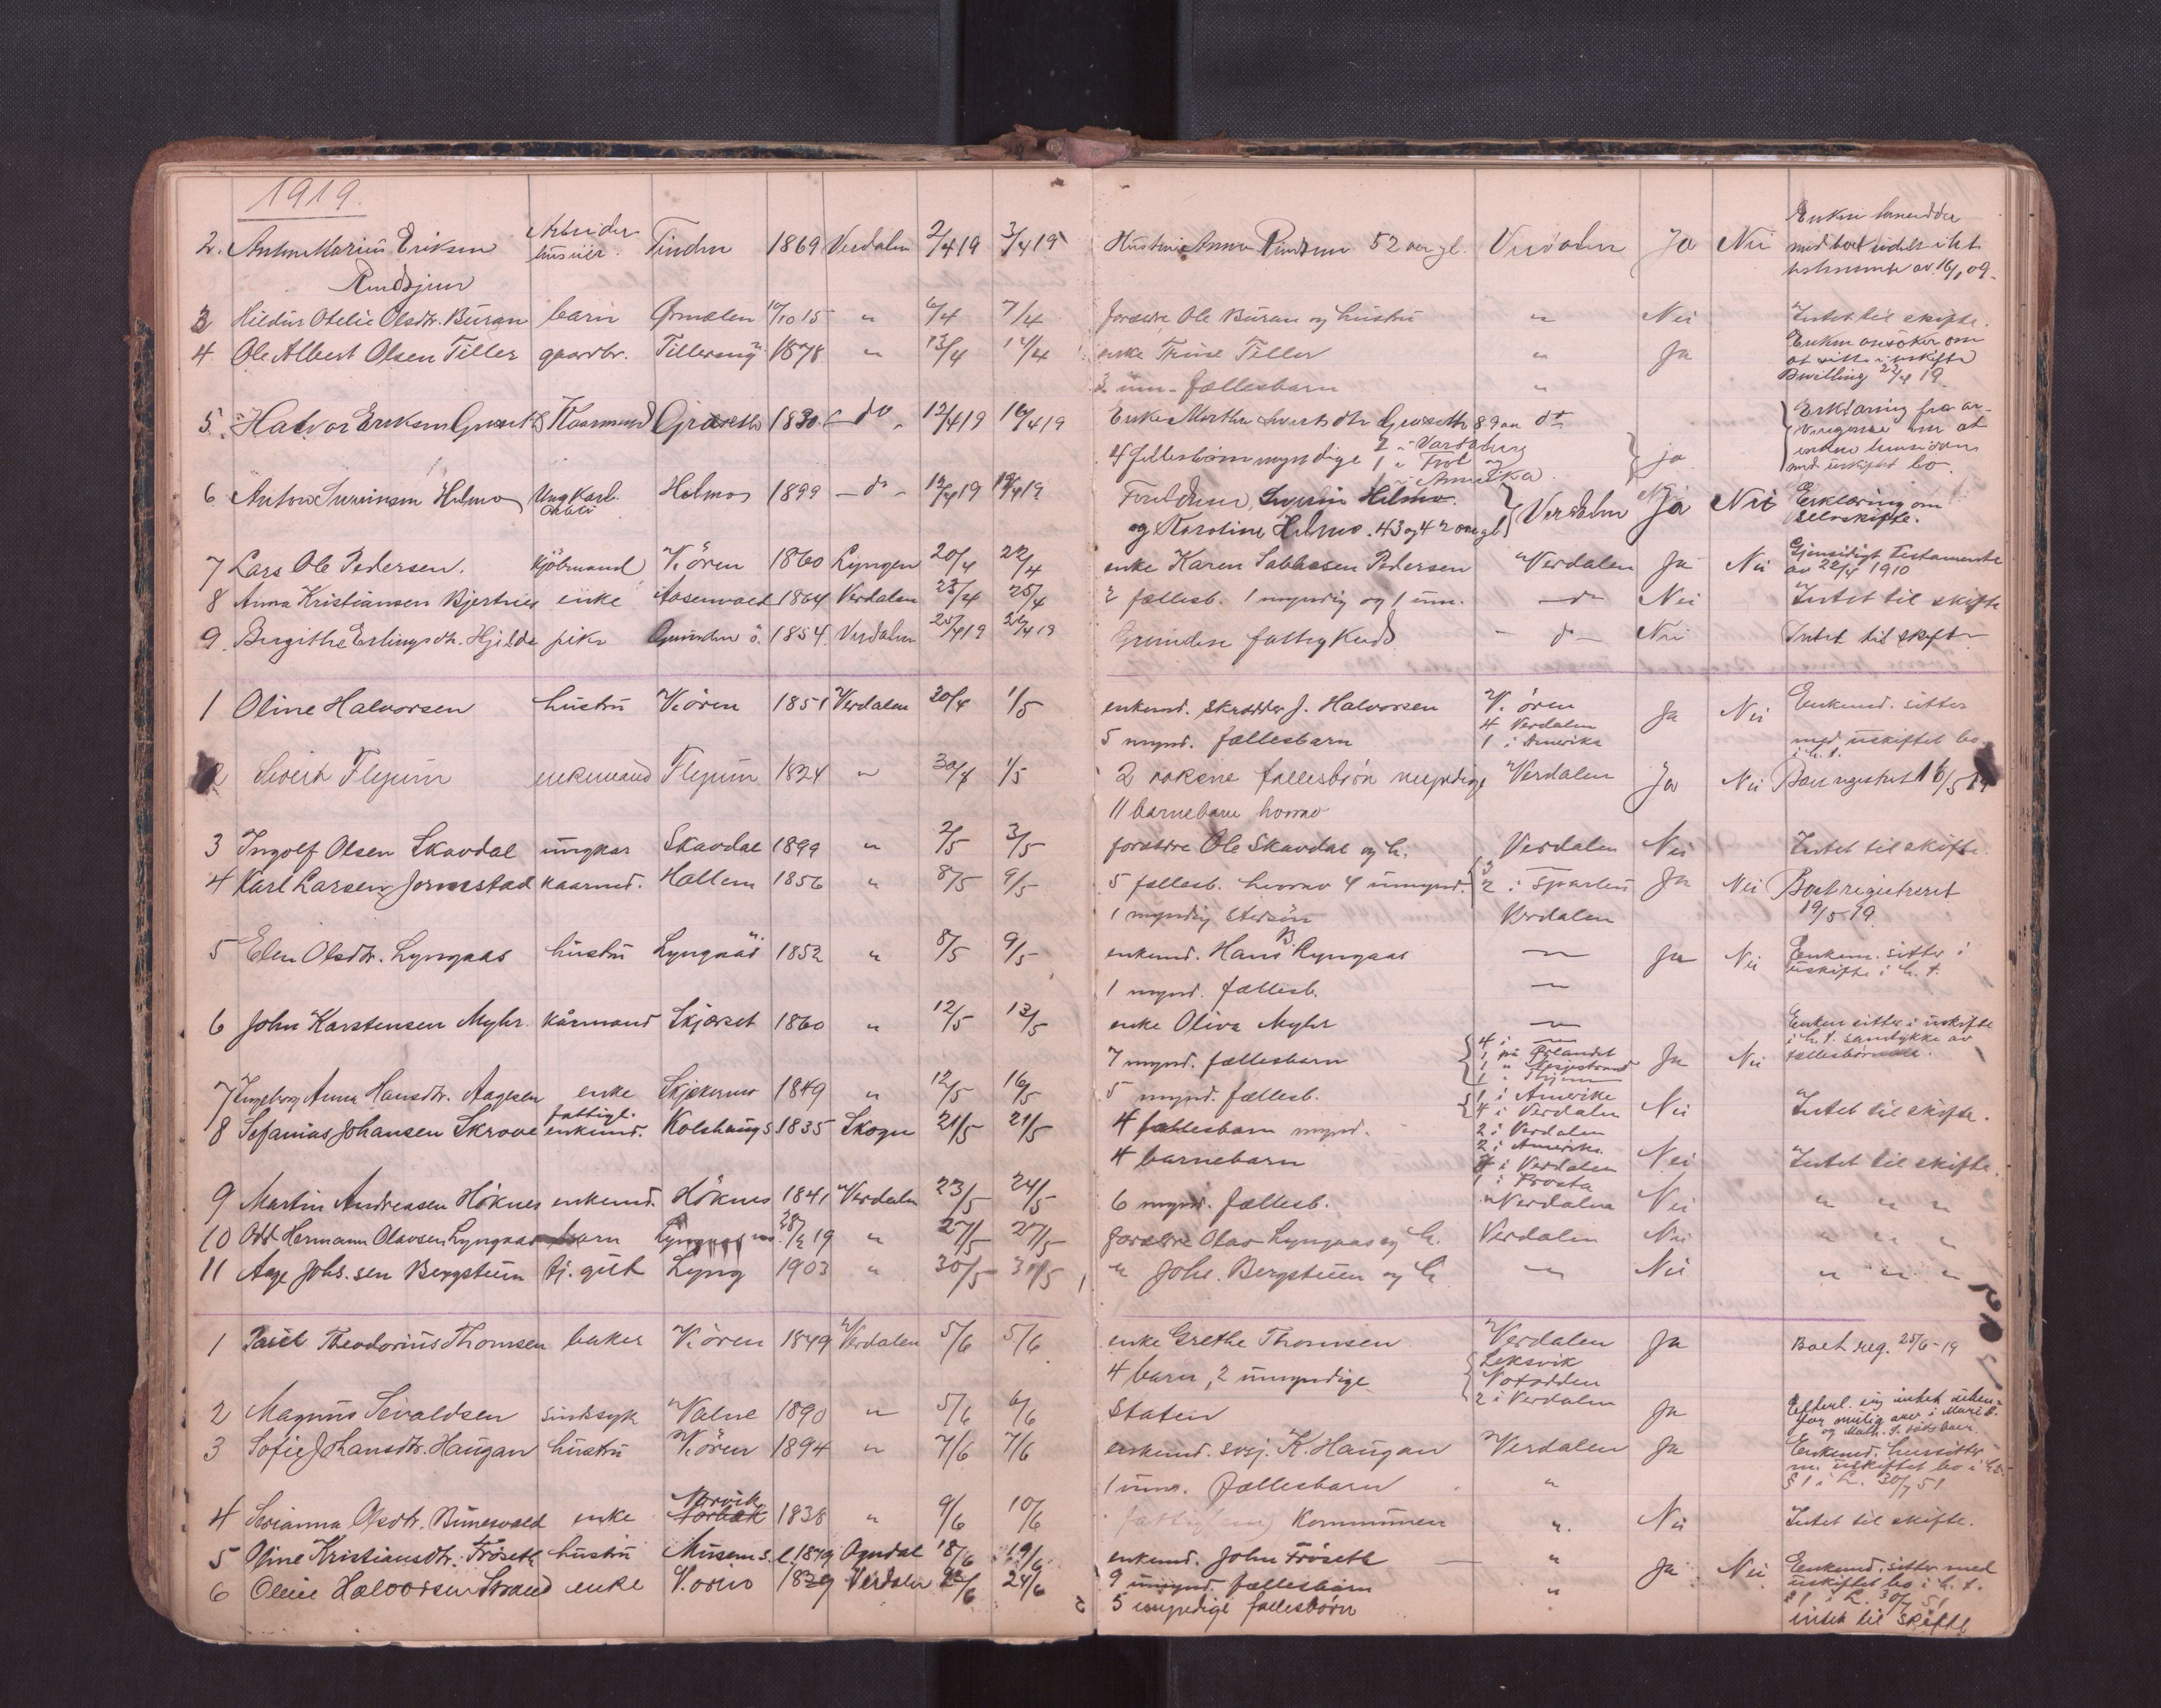 1919.
2. Anton Marius Eriksen Arbeider Tinden 1869 Verdalen 2/4 19 3/4 19 Hustru Anna 52 aar gl. Verdalen Ja Nei Enken
husmr. med boet
testamente av 16/1 09.
3 Hildur Otelie Olsdtr. Buran barn Ørmelen 10/10 15 " 6/4 7/4 foreldre Ole Buran og hustru " Nei Intet til skifte.
4 Ole Albert Olsen Tiller gaardbr. Tillereng 1878 " 13/4 14/4 enke Trine Tiller " Ja Enken ansøker om
at sitte i uskifte
3 um. fællesbarn " Bevilling 22/4 19
5. Halvor Eriksen Græseth Kaarmand Græseth 1830 - do - 12/4 19 16/4 19 Enke Marthe dtr Græseth 89 aar do Erklæring fra ar-
vingerne om at
4 fellesbørn myndige 2 i Verdalen
1 i Frol og ja enken hensidder
1 i Amerika med uskiftet bo.
6 Anton Helmo Ungkarl Helmo 1899 - do - 12/4 19 19/4 19 Foreldrene Helmo Verdalen Ja Nei Erklæring om
arbeid og Karoline Helmo. 43 og 42 aar gl. selvskifte.
7 Lars Ole Pedersen. kjöbmand V. ören 1860 Lyngen 20/4 22/4 enke Karen Pedersen Verdalen Ja Nei Gjensidigt Testamente
av 22/4 1910
8 Anna Kristiansen Bjertnes enke Aasenvald 1864 Verdalen 23/4 25/4 2 fællesb. 1 myndig og 1 um. - do - Nei Intet til skifte
9. Bergithe Erlingsdtr. Hjelde pike Grunden ö. 1854 Verdalen 25/4 19 26/4 19 Grunden fattigkreds - do - Nei Intet til skifte
1 Oline Halvorsen hustru V. ören 1851 Verdalen 30/4 1/5 enkemd. skrædder J. Halvorsen V. ören Ja Nei Enkemd. sitter
5 mynd. fællesbarn 4 Verdalen
1 i Amerika med uskiftet bo
i h. t.
2 Sivert Flyum enkemand Flyum 1824 " 30/4 1/5 2 voksne fællesbörn myndige Verdalen Ja Nei Boet registret 16/5 19
11 barnebarn hvorav
3 Ingolf Olsen Skavdal ungkar Skavdal 1899 " 2/5 3/5 foreldre Ole Skavdal og h. Verdalen Nei Intet til skifte.
4 Karl Larsen Jermstad kaarmd. Hallem 1856 " 8/5 9/5 5 fællesb. hvorav 4 umynd. 2 i Sparbu Ja Nei Boet registreret
1 myndig stedsön Verdalen 19/5 19.
5 Elen Olsdtr. Lyngaas hustru Lyngaas 1852 " 8/5 9/5 enkemd. Hans B. Lyngaas " Ja Nei Enkem. sitter i
uskifte i h. t.
1 mynd. fællesb. "
6 John Karstensen Myhr kårmand Skjærset 1860 " 12/5 13/5 enke Oliva Myhr " Enken sitter i uskifte
i h. t. samtykke av
7 mynd. fællesbarn 4 i " Ja Nei fællesbörnene.
7 Ingeborg Anna Hansdtr. Aagesen enke Skjækermo 1849 " 12/5 16/5 5 mynd. fællesb. 1 i Amerika
4 i Verdalen Nei Intet til skifte.
8 Sefanias Johansen Skrove fattigl. enkemd. Kolshaug s. 1835 Skogn 21/5 21/5 4 fællesbarn mynd. 2 i Verdalen
2 i Amerika
4 barnebarn 3 i Verdalen Nei Intet til skifte.
1 i Frosta
9 Martin Andreasen Höknes enkemd. Höknes 1841 Verdalen 23/5 24/5 6 mynd. fællesb. Verdalen Nei " " "
10 Odd Hermann Olavsen Lyngaas barn Lyngaas 28/2 19 " 27/5 27/5 foreldre Olav Lyngaas og h. Verdalen Nei " " "
11 Aage Johs.sen Bergsteen tj. gut Lyng 1903 " 30/5 31/5 " Johs. Bergsteen og h. " Nei " " "
1 Paul Theodorius Thomsen baker V. ören 1849 Verdalen 5/6 5/6 enke Grethe Thomsen Verdalen Ja Boet reg. 25/6-19
4 barn, 2 umyndige Leksvik
Notodden
2 i Verdalen
2 Magnus Sevaldsen sindssyk Valne 1890 " 5/6 6/6 Staten Ja Efterl. sig intet uten-
for mulig arv i
3 Sofie Johansdtr. Haugan hustru V. ören 1894 " 7/6 7/6 enkemd. svsj. K. Haugan Verdalen Ja Enkemd. hensitter
m. uskiftet bo i h. t.
1 um. fællesbarn " § 1 i L. 30/7 51
4 Serianna Olsdtr. Bunesvald enke Nervik 1838 " 9/6 10/6 Kommunen " Nei Intet til skifte.
5 Oline Kristiansdtr. Fröseth hustru Musem s. l. 1849 Ogndal 18/6 19/6 enkemd. John Fröseth " Ja Nei Enkemd. sitter med
9 umynd. fællesbarn " uskiftet bo i h. t.
§ 1 i L. 30/7 51
6 Oline Halvorsen Strand enke V. øren 1839 Verdalen 24/6 5 myndige fællesbørn intet til skifte